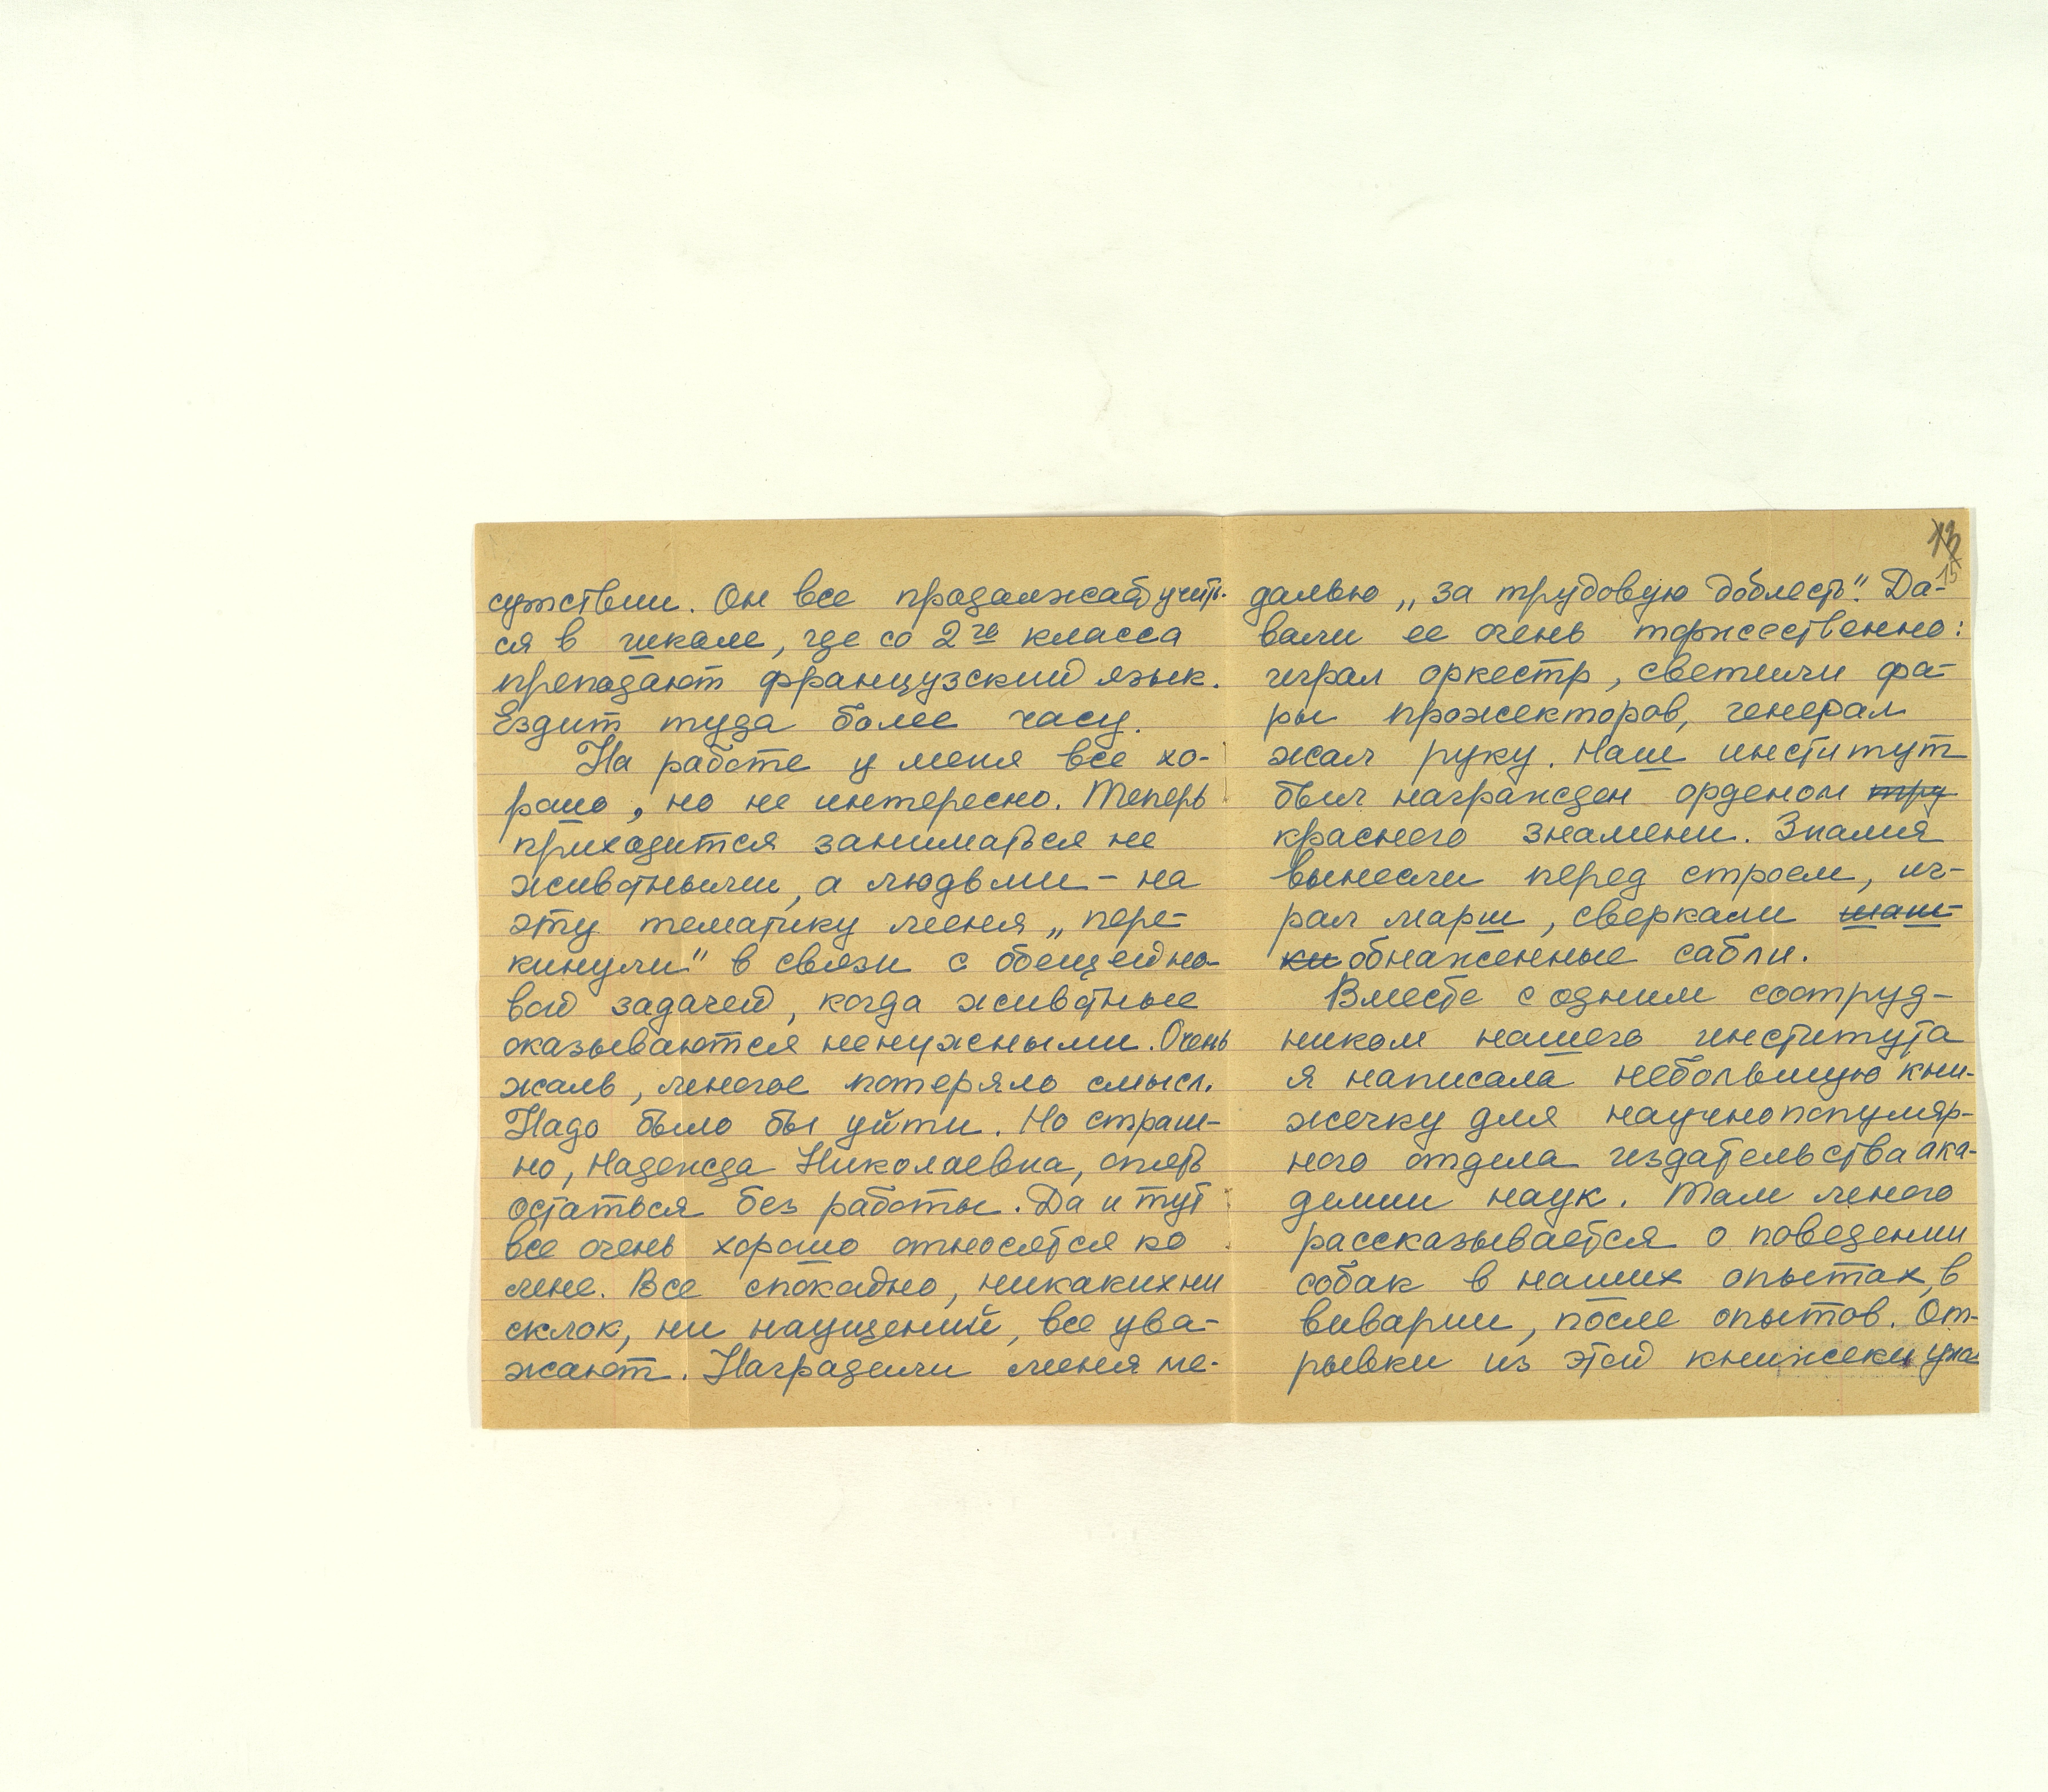 сутствии. Он все продолжает учить-
ся в школе, где со 2го класса
преподают французский язык.
Ездит туда более часу.
На работе у меня все хо-
рошо, но не интересно. Теперь
приходится заниматься не
животными, а людьми - на
эту тематику меня „пере-
кинули" в связи с общей но-
вой задачей, когда животные
оказываются ненужными. Очень
жаль, многое потеряло смысл.
Надо было бы уйти. Но страш-
но, Надежда Николаевна, опять
остаться без работы. Да и тут
все очень хорошо относятся ко
мне. Все спокойно, никаких ни
склок, ни наущений, все ува-
жают. Наградили меня ме-
13
15
далью „за трудовую доблесть". Да-
вали ее очень торжественно:
играл оркестр, светили фа-
ры прожекторов, генерал
жал руку. Наш институт
был награжден орденом тру
красного знамени. Знамя
вынесли перед строем, иг-
рал марш, сверкали шаш-
ки обнаженные сабли.
Вместе с одним сотруд-
ником нашего института
я написала небольшую кни-
жечку для научнопопуляр-
ного отдела издательства ака-
демии наук. Там много
рассказывается о поведении
собак в наших опытах, в
виварии, после опытов. От-
рывки из этой книжеки уже